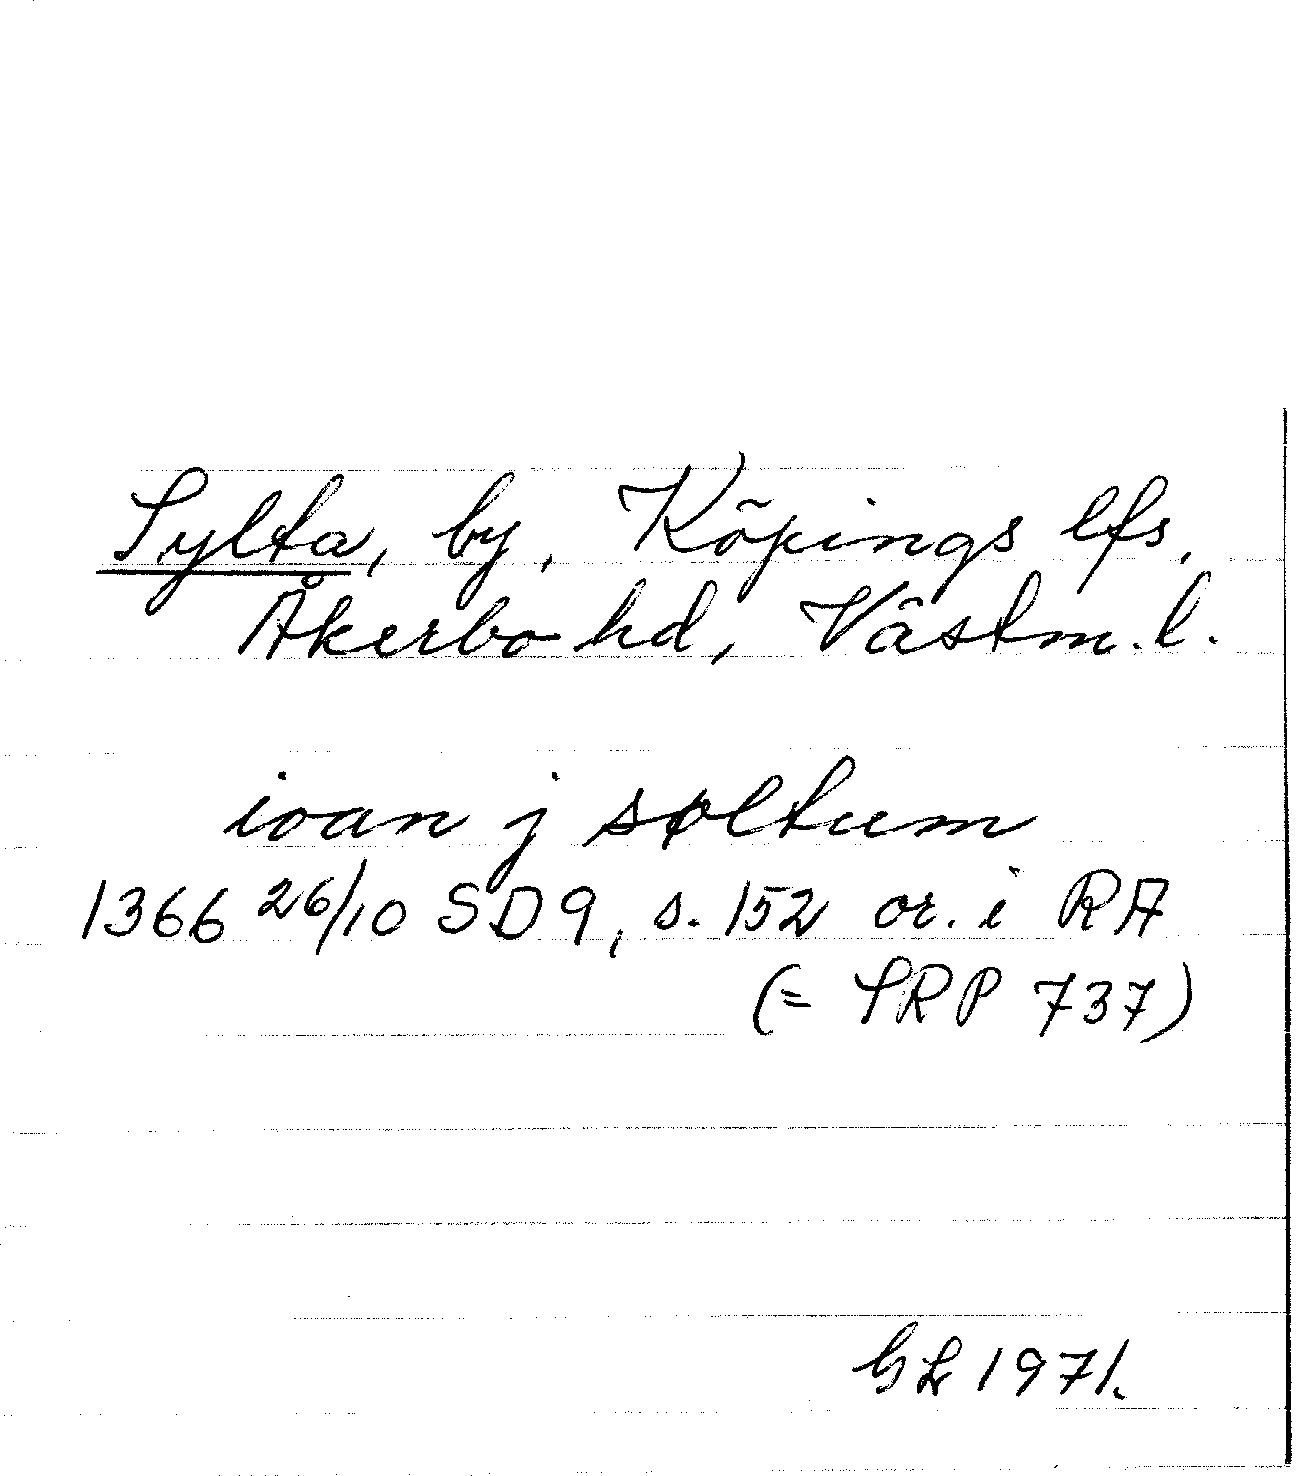 Sylta, by, Köpings lfs,
Åkerbo hd, Västm. l.
ioan j søltum
1366 26/10 SD 9, s. 152 or. i RA
(= SRP 737)
GL 1971.